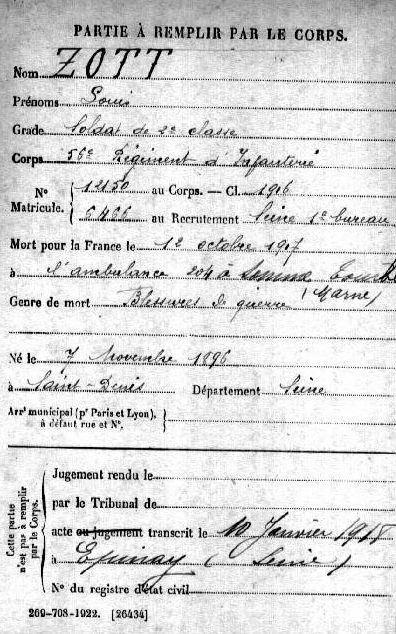 PARTIE À REMPLIR PAR LE CORPS.
Nom ZOTT
Prénoms Louis
Grade Soldat de 2e classe
Corps 56e Régiment d'Infanterie
N° Matricule. { 12150 au Corps. — Cl. 1916
5466 au Recrutement Seine 1e bureau
Mort pour la France le 12 octobre 1917
à l'ambulance 204 à Somme
(Marne)
Genre de mort Blessures de guerre
Né le 7 Novembre 1896
à Saint-Denis Département Seine
Arr' municipal (p' Paris et Lyon), à défaut rue et N°. }
Cette partie n'est pas à remplir par le Corps.
Jugement rendu le
par le Tribunal de
acte ou jugement transcrit le 10 Janvier 1918
à Epinay (Seine)
N° du registre d'état civil
269-708-1922. [26434]